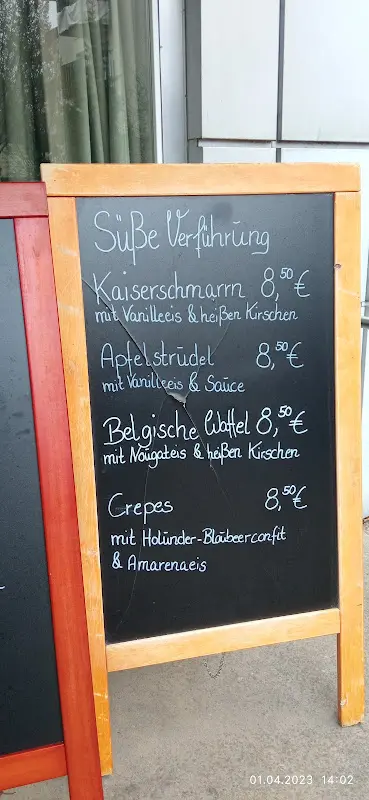 Süße Verführung
Kaiserschmarrn 8,50€
mit Vanilleeis & heißen Kirschen
Apfelstrudel 8,50€
mit Vanilleeis & Sauce
Belgische Waffel 8,50€
mit Nougateis & heißen Kirschen
Crepes 8,50€
mit Holunder-Blaubeerconfit
& Amarenaeis
01.04.2023 14:02